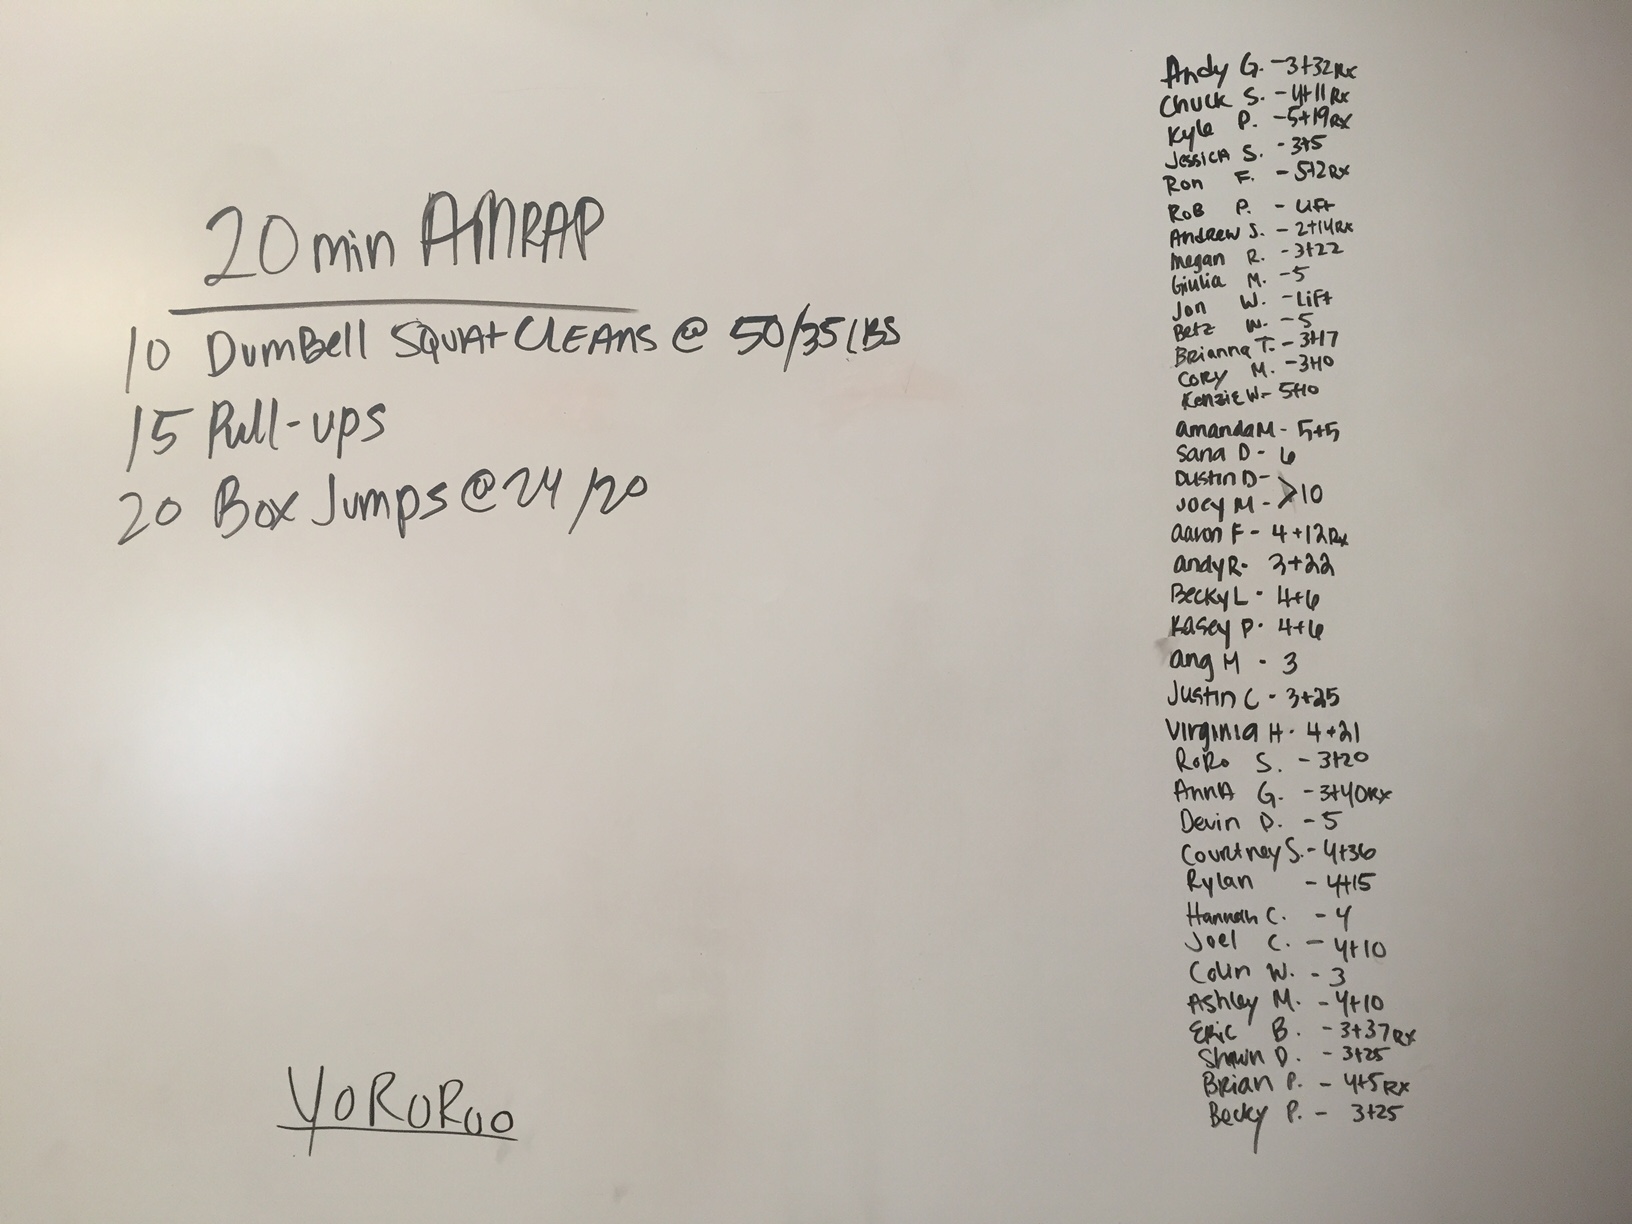 20 min AMRAP
10 DumBell SQUAt CLEANS @ 50/35 LBS
15 Pull-ups
20 Box Jumps @ 24/20
YoRoRoo
Andy G. - 3+32 Rx
Chuck S. - 4+11 Rx
Kyle P. - 5+19 Rx
Jessica S. - 3+5
Ron F. - 5+2 Rx
RoB P. - Lift
Andrew S. - 2+14 Rx
Megan R. - 3+22
Giulia M. - 5
Jon W. - Lift
Betz W. - 5
Brianna T. - 3+17
Cory M. - 3+10
Kenzie W - 5+10
amanda M - 5+5
Sana D - 6
Dustin D -
Joey M - >10
aaron F - 4+12 Rx
andy R - 3+22
Becky L - 4+6
Kasey P - 4+6
ang M - 3
Justin C - 3+25
Virginia H - 4+21
RoRo S. - 3+20
AnnA G. - 3+40 Rx
Devin D. - 5
Courtney S. - 4+36
Rylan - 4+15
Hannah C. - 4
Joel C. - 4+10
Colin W. - 3
Ashley M. - 4+10
Eric B. - 3+37 Rx
Shawn D. - 3+25
Brian P. - 4+5 Rx
Becky P. - 3+25